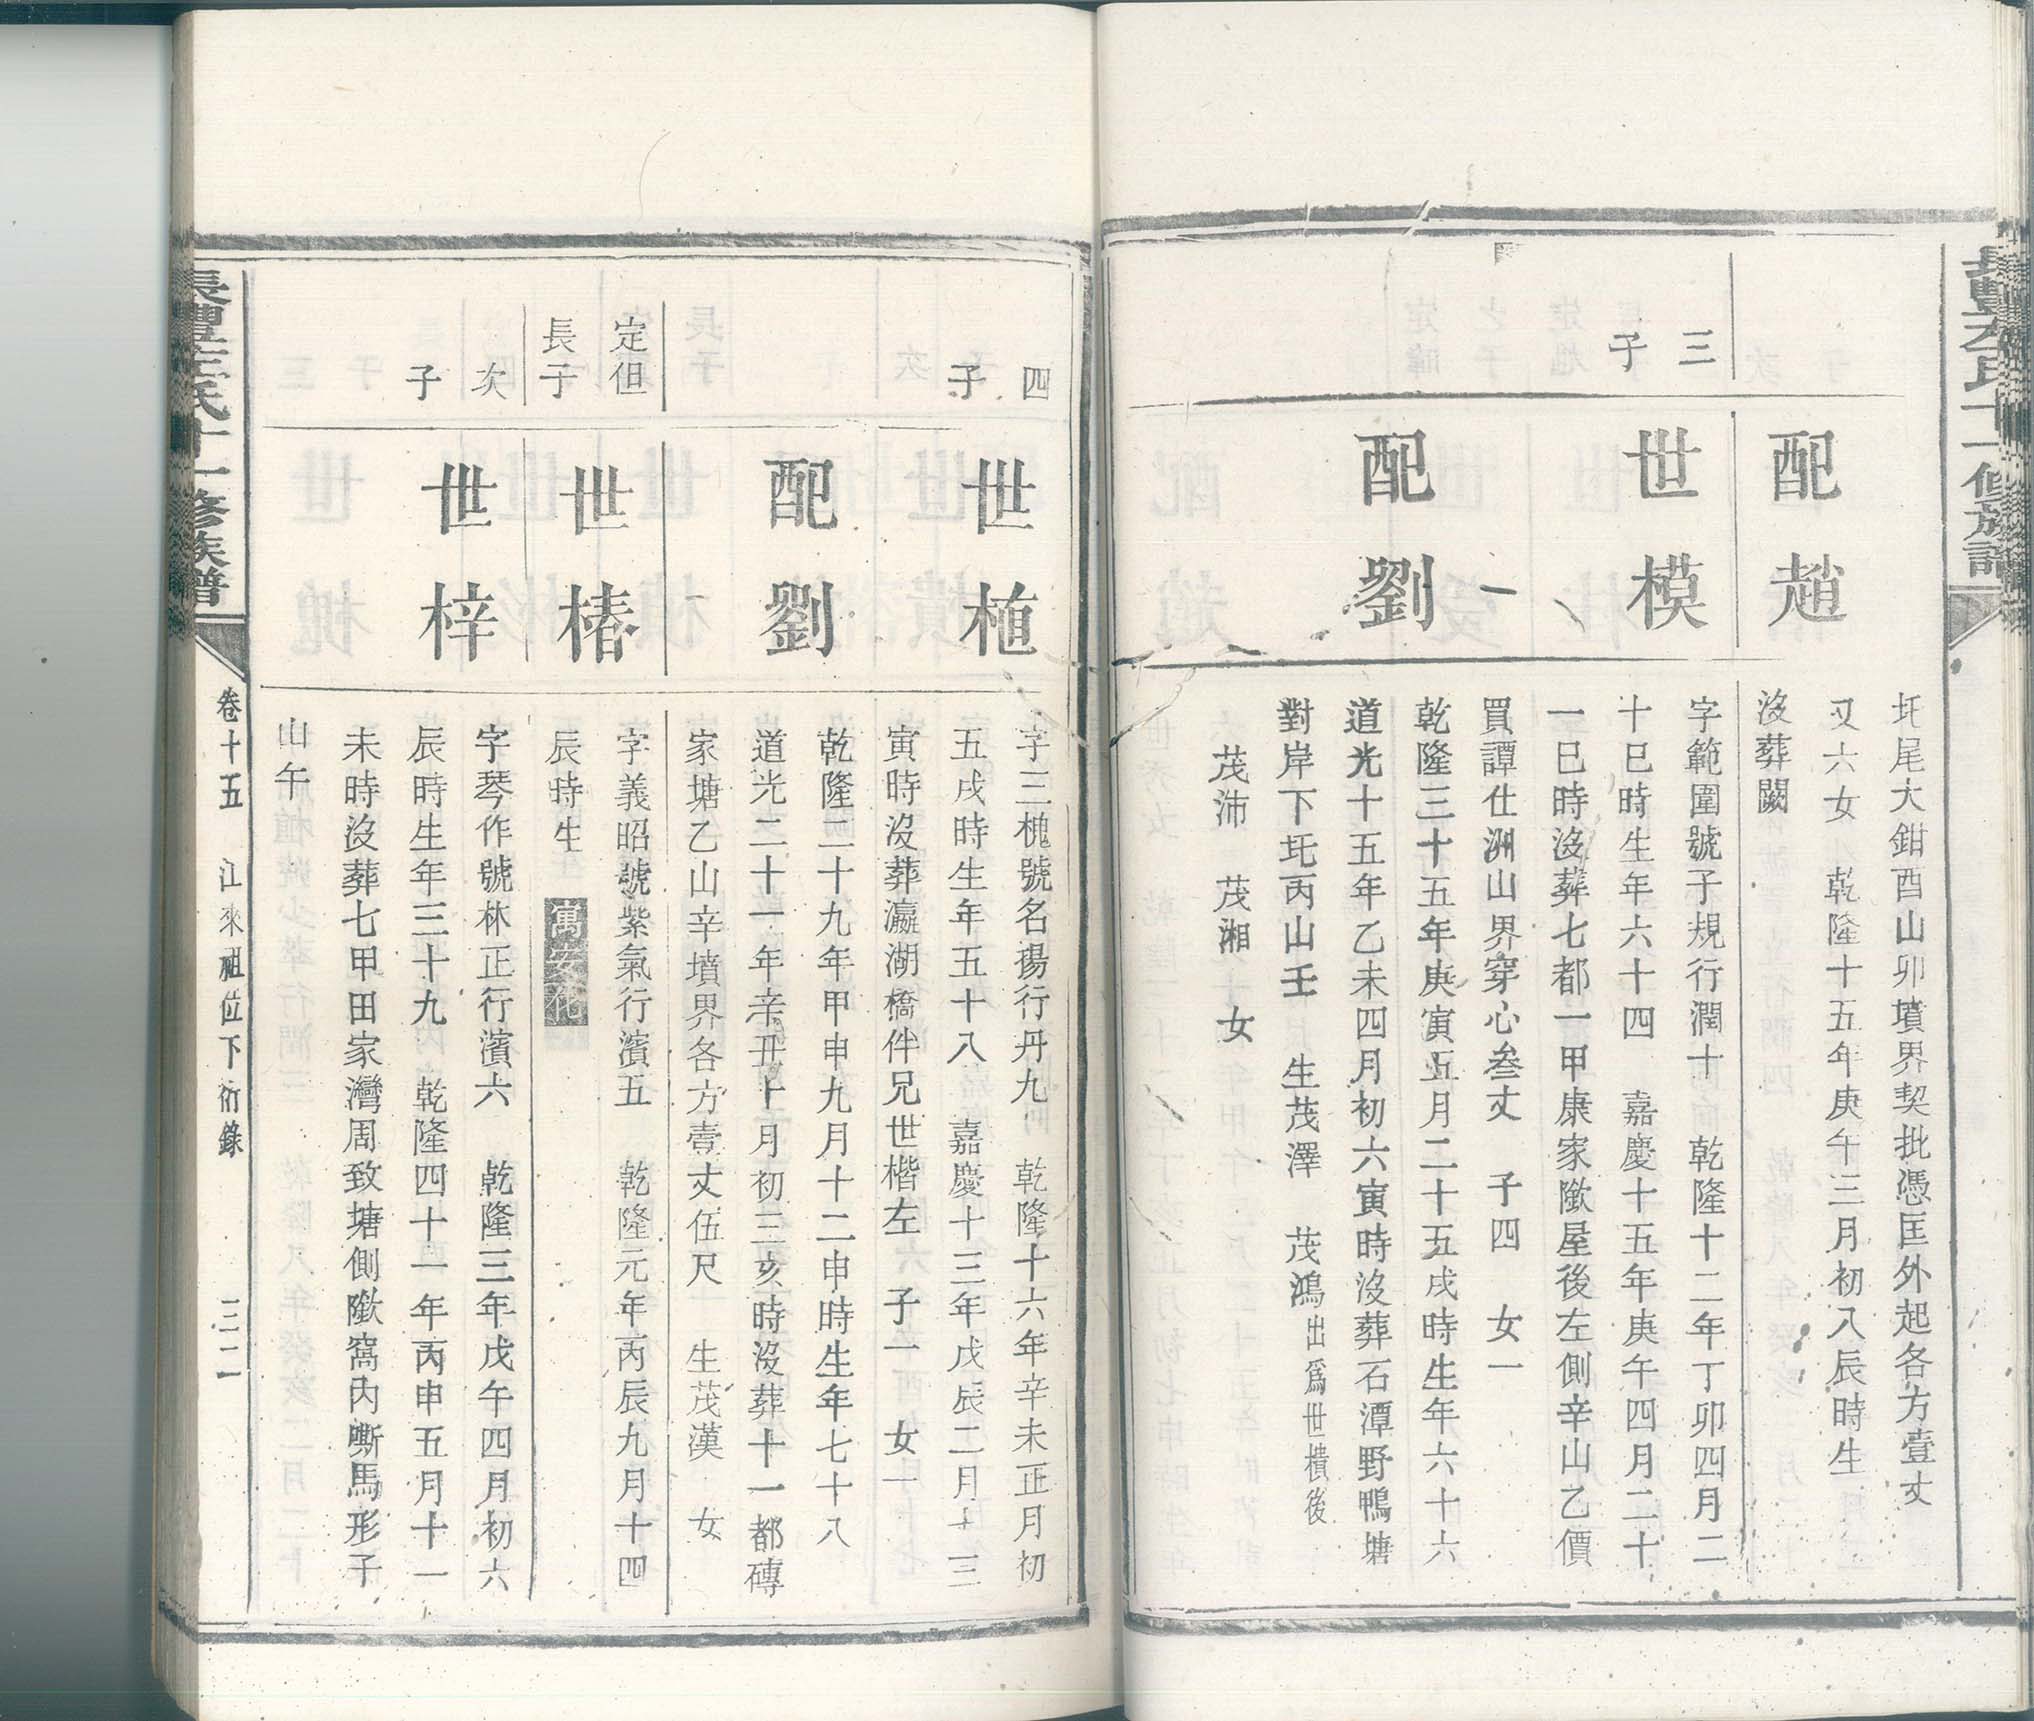 圫尾大鉗酉山卯墳界契批憑匡外起各方壹丈
配趙
又六女 乾隆十五年庚午三月初八辰時生
沒葬闕
三子
世模
字範圍號子規行潤十 乾隆十二年丁卯四月二
十巳時生年六十四 嘉慶十五年庚午四月二十
一巳時沒葬七都一甲康家㘭屋後左側辛山乙價
買譚仕洲山界穿心叁丈 子四 女一
配劉
乾隆三十五年庚寅五月二十五戌時生年六十六
道光十五年乙未四月初六寅時沒葬石潭野鴨塘
對岸下圫丙山壬 生茂澤 茂鴻出爲世横後
茂沛 茂湘 女
四子
世植
字三槐號名揚行丹九 乾隆十六年辛未正月初
五戌時生年五十八 嘉慶十三年戊辰二月十三
寅時沒葬瀛湖橋伴兄世楷左 子一 女一
配劉
乾隆二十九年甲申九月十二申時生年七十八
道光二十一年辛丑十月初三亥時沒葬十一都磚
家塘乙山辛墳界各方壹丈伍尺 生茂漢 女
定但
長子
世椿
字義昭號紫氣行濱五 乾隆元年丙辰九月十四
辰時生 寓安化
次子
世梓
字琴作號林正行濱六 乾隆三年戊午四月初六
辰時生年三十九 乾隆四十一年丙申五月十一
未時沒葬七甲田家灣周致塘側㘭窩內嘶馬形子
山午
卷十五 江來祖位下衍錄 三二
氏十一修族譜